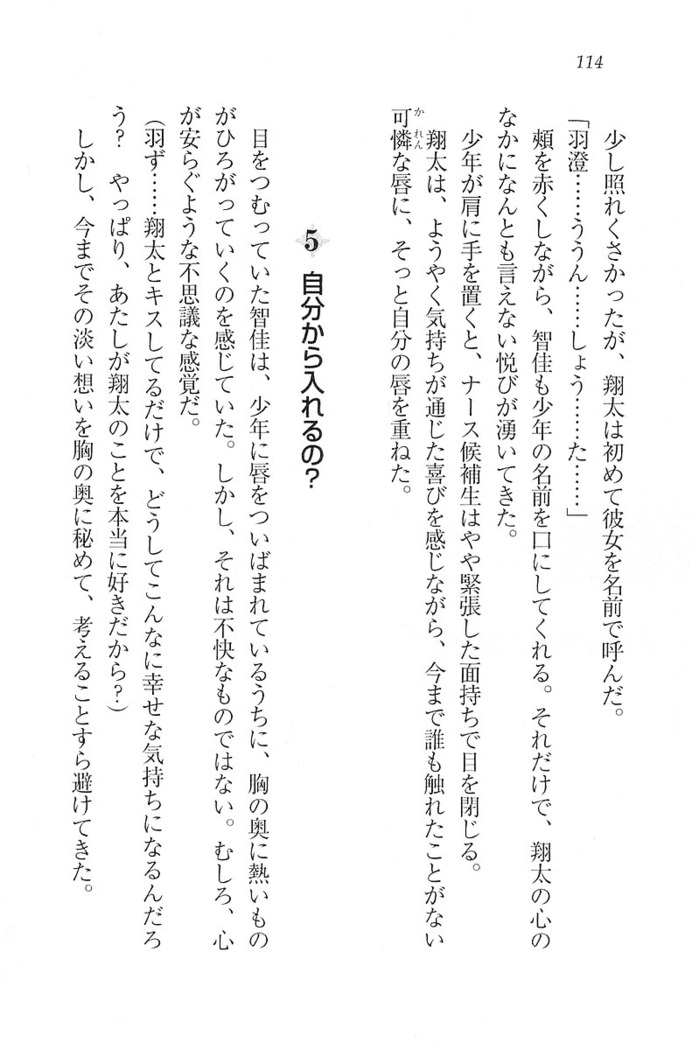 114
少し照れくさかったが、翔太は初めて彼女を名前で呼んだ。
「羽澄……ううん……しょう……た……」
頰を赤くしながら、智佳も少年の名前を口にしてくれる。それだけで、翔太の心の
なかになんとも言えない悦びが湧いてきた。
少年が肩に手を置くと、ナース候補生はやや緊張した面持ちで目を閉じる。
翔太は、ようやく気持ちが通じた喜びを感じながら、今まで誰も触れたことがない
可憐な唇に、そっと自分の唇を重ねた。
かれん
5 自分から入れるの?
目をつむっていた智佳は、少年に唇をついばまれているうちに、胸の奥に熱いもの
がひろがっていくのを感じていた。しかし、それは不快なものではない。むしろ、心
が安らぐような不思議な感覚だ。
(羽ず……翔太とキスしてるだけで、どうしてこんなに幸せな気持ちになるんだろ
う? やっぱり、あたしが翔太のことを本当に好きだから?)
しかし、今までその淡い想いを胸の奥に秘めて、考えることすら避けてきた。